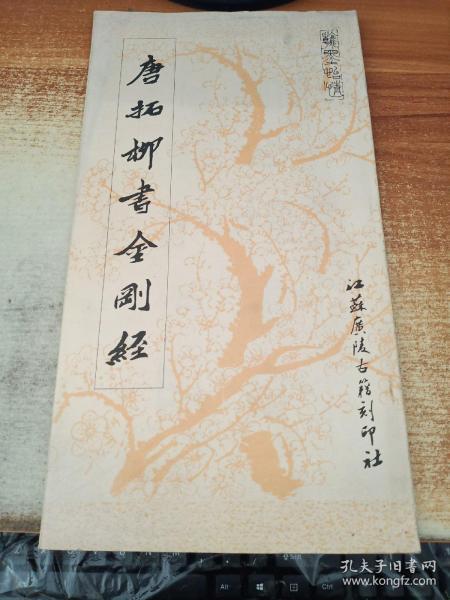 翰墨怡情
唐拓柳書金剛經
江蘇廣陵古籍刻印社
孔夫子旧书网
www.kongfz.com
Alt
Ctrl